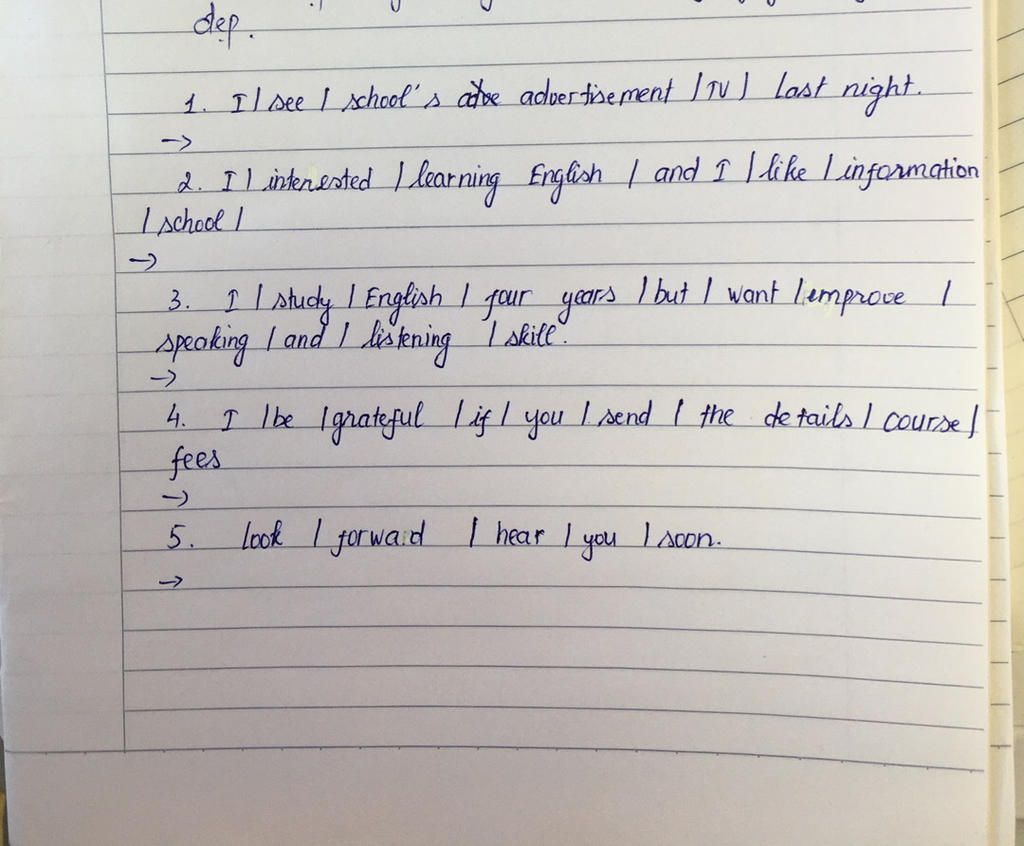 dep.
1. I / see / school's advertisement / TV / last night.
->
2. I / interested / learning English / and I / like / information
/ school /
->
3. I / study / English / four years / but / want / improve /
speaking / and / listening / skill.
->
4. I / be / grateful / if / you / send / the details / course /
fees
->
5. look / forward / hear / you / soon.
->